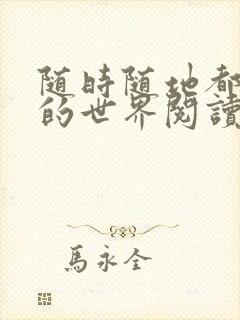 随時随地都
的世界閱讀
馬永全